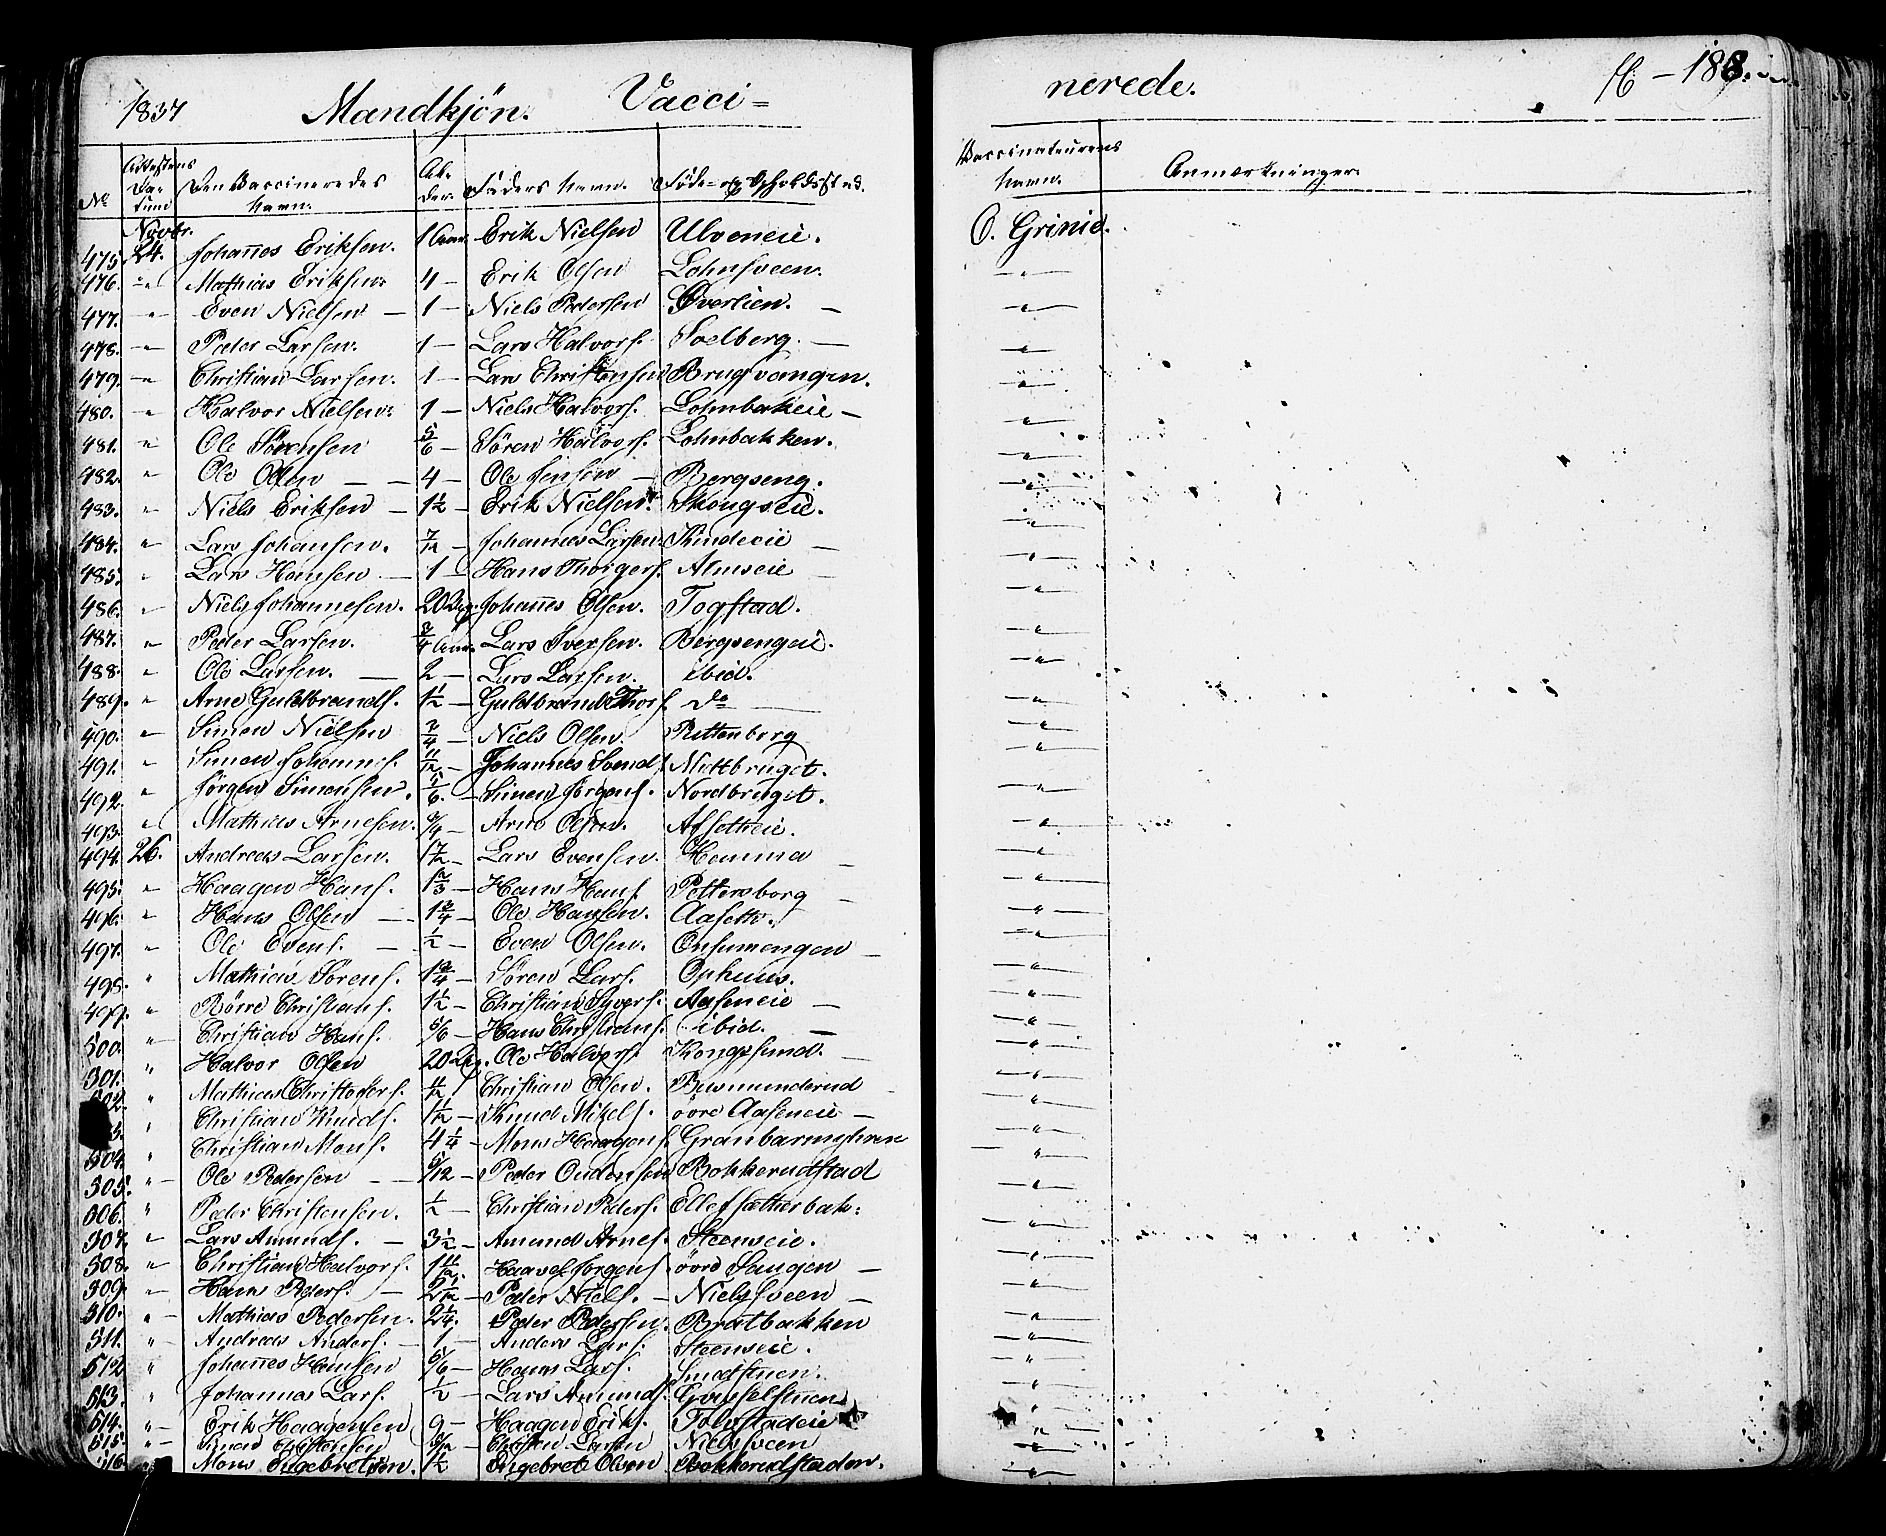 1837 Mandkjøn. Vacci=
nerede. 188.
No Attestens Datum Den Vaccineredes Navn. Alder. Faders Navn. Føde= og Opholdssted. Vaccinateurens Navn. Anmærkninger.
Novbr.
475. 24. Johannes Eriksen. 1 Aar. Erik Nielsen Ulveneie. O. Grinie.
476. " Mathias Eriksen 4 — Erik Olsen Lohnsveen. — " —
477. " Even Nielsen — 1 — Niels Pedersen Øverlien. — — " —
478. " Peder Larsen. 1 — Lars Halvors. Soelberg. — — " —
479. " Christian Larsen. 1 — Lars Christensen Brugvangen. — " —
480. " Halvor Nielsen 1 — Niels Halvors. Lohnbakeie — — " —
481. " Ole Sørensen 5/6 — Søren Halvors. Lohnbakken. — " —
482. " Ole Olsen — — 4 — Ole Jensen — Bergseng. — " —
483. " Niels Eriksen — 1 1/2 — Erik Nielsen. Skougseie. — " —
484. " Lars Johansen. 7/12 — Johannes Larsen Kindeeie — — " —
485. " Lars Hansen — 1 — Hans Thorgers. Almseie — — " —
486. " Niels Johannesen. 20 Johannes Olsen. Togstad. — " —
487. " Peder Larsen. 3/4 Aar. Lars Iversen. Bergsengeie. — " —
488. " Ole Larsen. — 2 — Lars Larsen. ibid. — " —
489. " Arne Guldbrands. 1 1/2 — Guldbrand Thors. do — " —
490. " Simen Nielsen 3/4 — Niels Olsen. — " —
491. " Simen Johannes. 11/12 — Johannes Svends. Mittbruget. — " —
492. " Jørgen Simensen. 1/6. — Simen Jørgens. Nordbruget. — " —
493. " Mathias Arnesen. 3/4 — Arne Olsen. Afsetheie. — " —
494. 26. Andreas Larsen. Lars Evensen. Homma — — " —
495. " Haagen Hans. 1 2/3 — Hans Hans. Pettersborg — — " —
496. " Hans Olsen — 1 3/4 — Ole Hansen. Aasette. — " —
497. " Ole Evens. — 1/2 — Even Olsen. Onsumengen — — " —
498. " Mathias Sørens. 1 3/4 — Søren Lars. Ophuus. — " —
499. " Børre Christians. 1 1/2 — Christian Syvers. Aaseneie — — " —
500. " Christian Hans. 5/6 — Hans Christians. ibid. — — " —
501. " Halvor Olsen 20 Ole Halvors. Kongssund. — — " —
502. " Mathias Christophers. Christian Olsen. Busmunderud — " —
" Christian Knuds. 1 1/2 — Knud Mikels. øvre Aaseneie — — " —
504. " Christian Mons. 4 1/4 — Mons Haagens. Granbarmyhren — " —
505. " Ole Pedersen — 5/12 — Peder Oudensen Bokkerudstad — " —
506. " Peder Christensen. 1/2 — Christian Peders. Ellefsætherbak: — " —
507. " Lars Amunds. — 3 1/2 — Amund Arnes. Steenseie. — " —
508. " Christian Halvors. 1 11/12 — Haavel Jørgens. øvre Saugen — — " —
509. " Hans Peders. — 2 1/12 — Peder Niels. — Nielsveen — — " —
510. " Mathias Pedersen. 2 1/4. Peder Pedersen. Bratbakken — " —
511. " Andreas Anders. — 1 — Anders Lars. Steenseie. — " —
512 " Johannes Hansen 5/6 — Hans Lars. Smedstuen. — " —
513. " Johannes Lars. 1/2 — Lars Amunds. — " —
514. " Erik Haagensen 9 — Haagen Eriks. Tolvstadeie — " —
515. " Simen Christensen Christen Larsen Nielsveen — " —
516 " Mons Engebretsen. 1 1/2 Engebret Olsen Bokkerudstaden. — " —